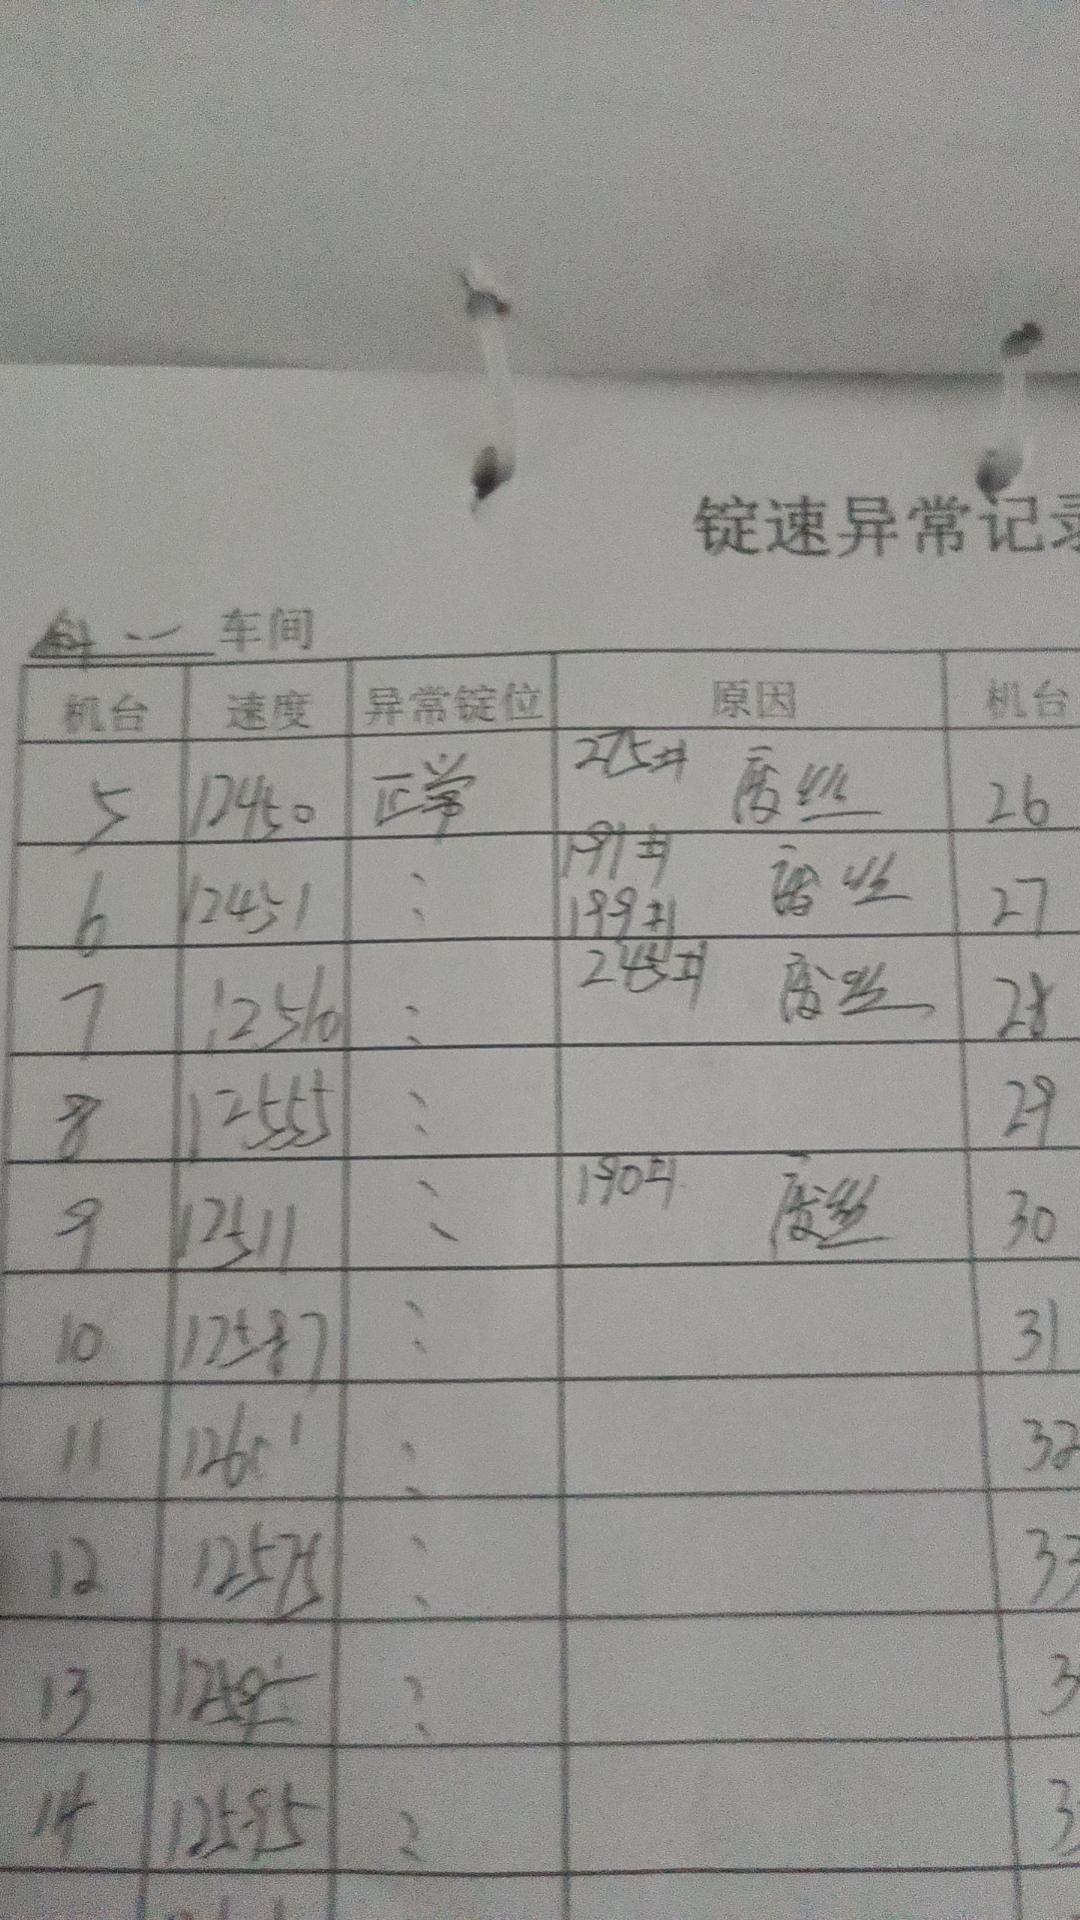 锭速异常记录
车间
机台 速度 异常锭位 原因 机台
5 12450 正常 275# 废丝 26
6 12451 : 191# 199# 废丝 27
7 12510 : 245# 废丝 28
8 12555 : 29
9 12511 : 190# 废丝 30
10 12587 : 31
11 : 32
12 12575 : 33
13 :
14 12595